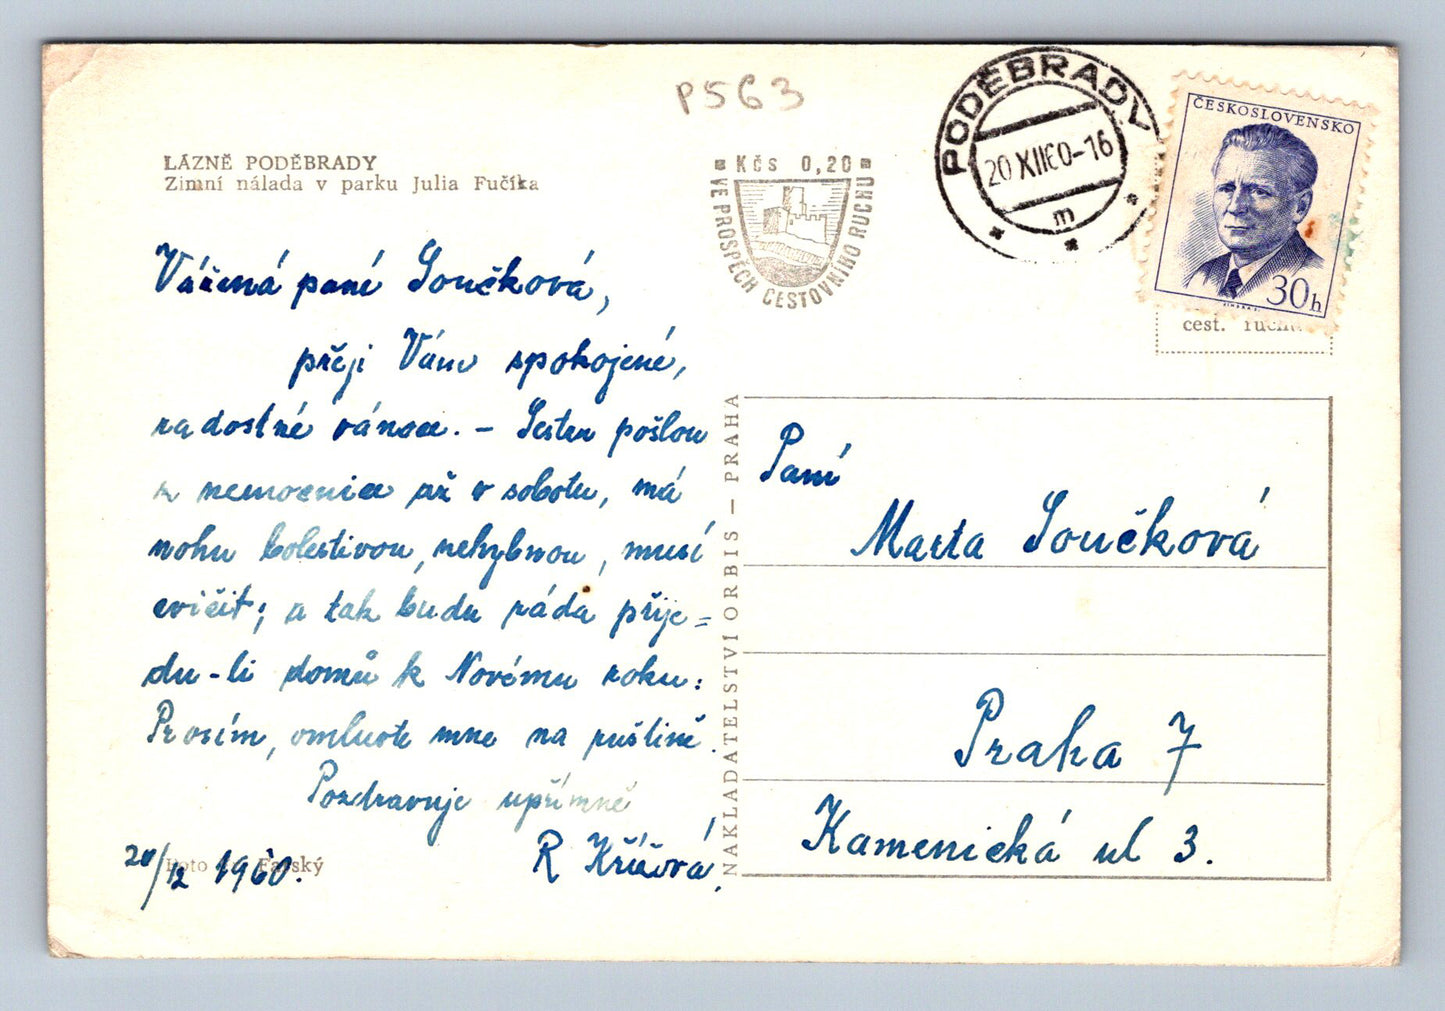 P563
LÁZNĚ PODĚBRADY
Zimní nálada v parku Julia Fučíka
Kčs 0,20
VE PROSPĚCH CESTOVNÍHO RUCHU
PODĚBRADY
20 XII 60-16
m
ČESKOSLOVENSKO
30h
cest. ruchu
Vážená paní Součková,
přeji Vám spokojené,
radostné vánoce. – Sestru pošlou
z nemocnice až v sobotu, má
nohu bolestivou, nehybnou, musí
cvičit; a tak budu ráda přije=
du-li domů k Novému roku:
Prosím, omluvte mne na
Pozdravuje upřímně
R Křížová,
20/12 1960.
Foto Farský
NAKLADATELSTVÍ ORBIS — PRAHA
Paní
Marta Součková
Praha 7
Kamenická ul 3.